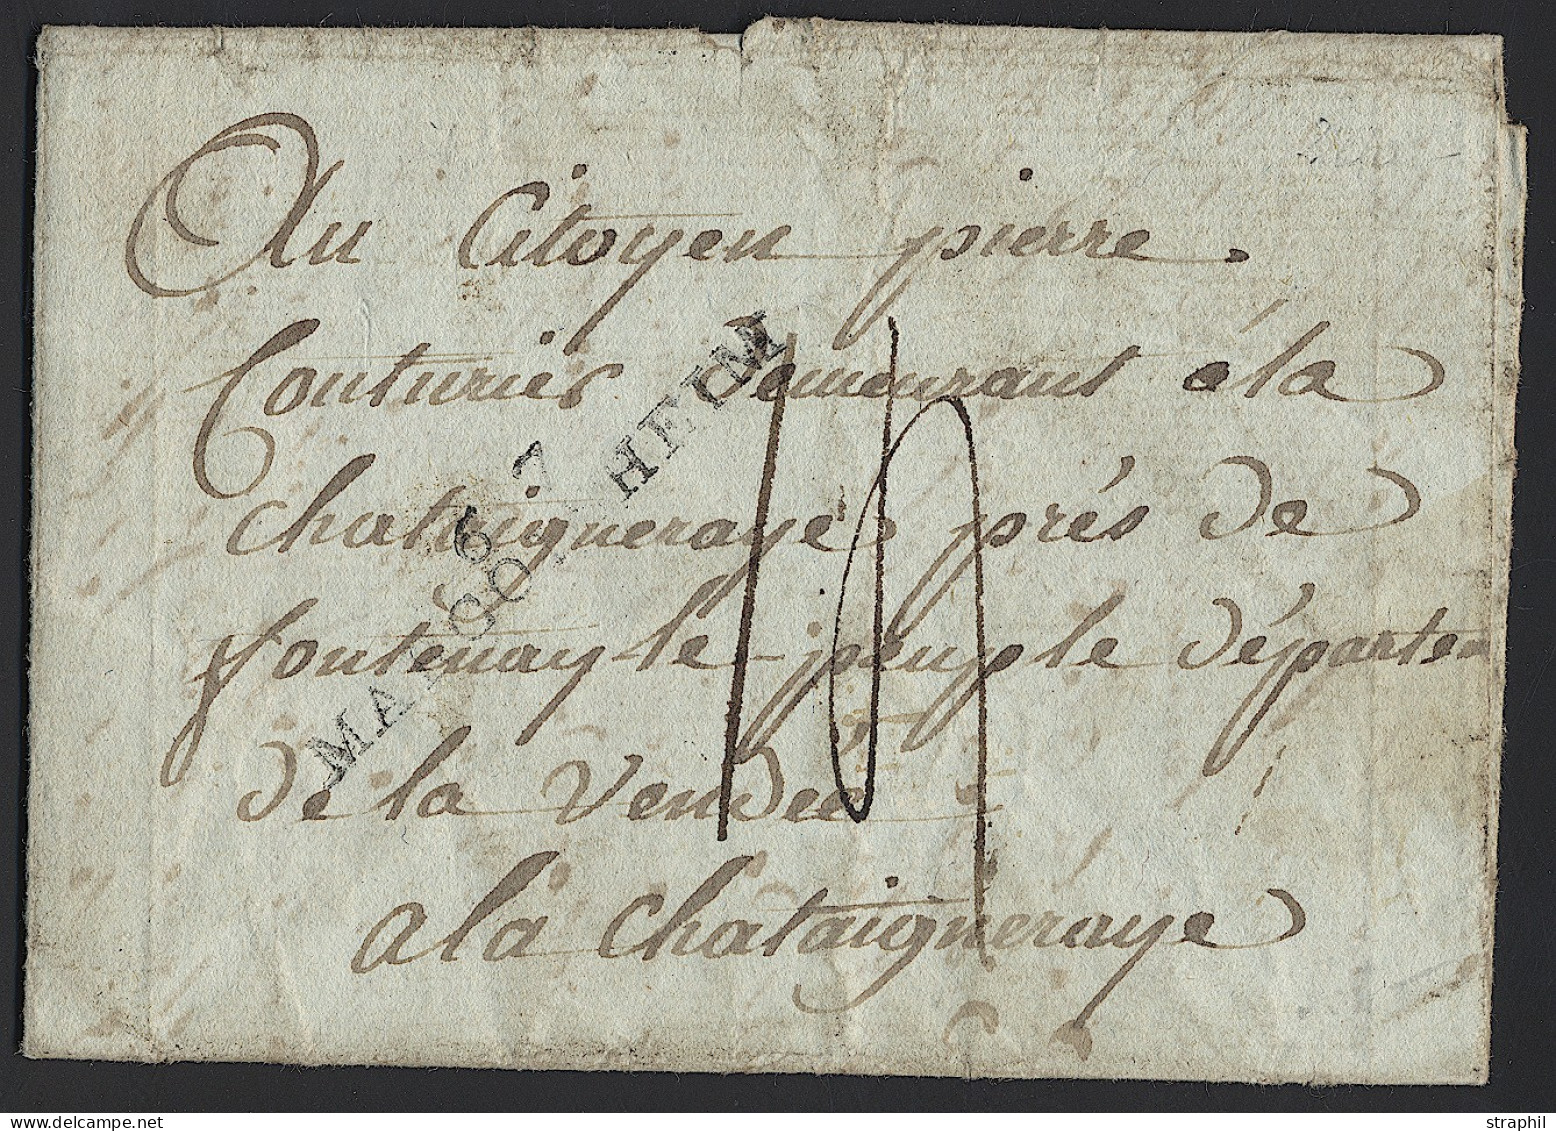 Au Citoyen pierre
Couturier Demeurant à la
Chataigneraye près de
fontenay-le-peuple départem
de la Vendée
a la Chataigneraye
67
MARCO HEIM
14
straphil